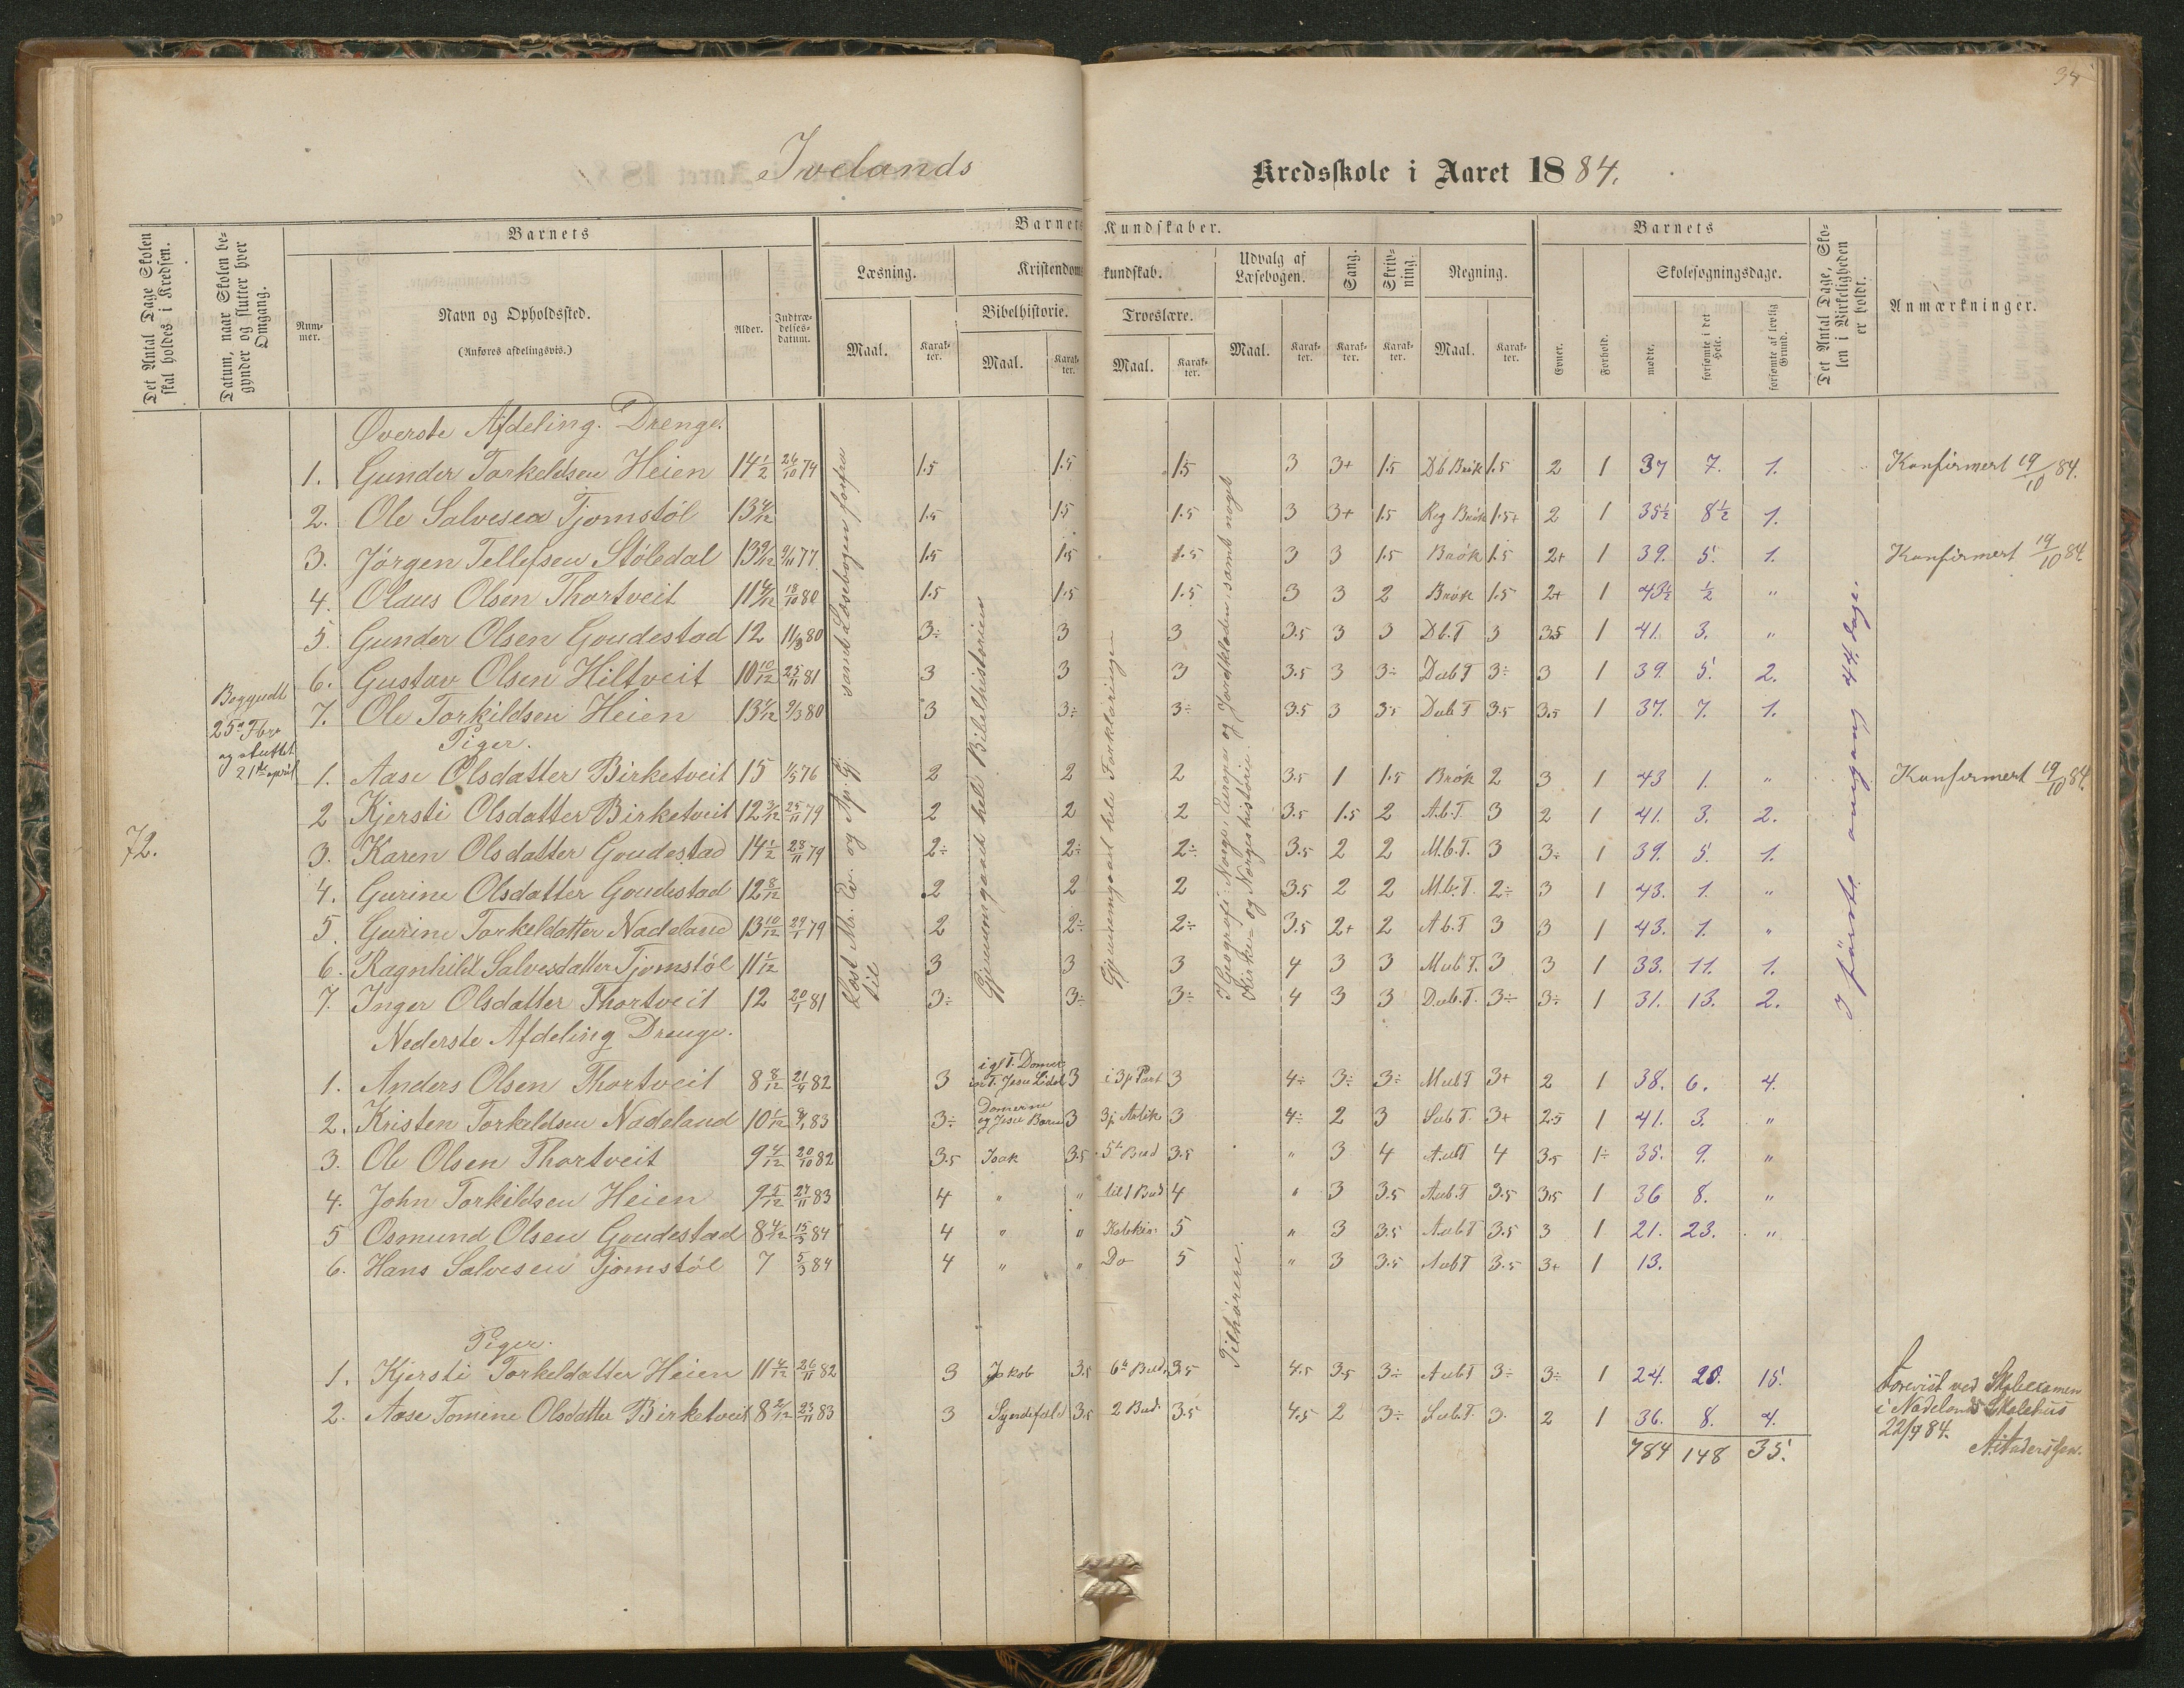 34
Ivelands Kredsskole i Aaret 1884.
Det Antal Dage Skolen skal holdes i Kredsen.
Datum, naar Skolen begynder og slutter hver Omgang.
Barnets
Nummer.
Navn og Opholdssted.
(Anføres afdelingsvis.)
Alder.
Indtrædelsesdatum.
Barnets Kundskaber.
Læsning.
Maal.
Karakter.
Kristendomskundskab.
Bibelhistorie.
Maal.
Karakter.
Troeslære.
Maal.
Karakter.
Udvalg af Læsebogen.
Maal.
Karakter.
Sang.
Karakter.
Skrivning.
Karakter.
Regning.
Maal.
Karakter.
Barnets
Evner.
Forhold.
Skolesøgningsdage.
mødte.
forsømte i det Hele.
forsømte af lovlig Grund.
Det Antal Dage, Skolen i Virkeligheden er holdt.
Anmærkninger.
72.
Begyndt
25de Fbr
og sluttet
21de april
Læst Mr. Ev. og Ap. Gj. samt Læsebogen forfra til
Gjennemgaaet hele Bibelhistorien
Gjennemgaaet hele Forklaringen
I Geografi: Norge, Europa og Jordkloden, samt noget Kirke- og Norgeshistorie.
Tilhørere.
I første omgang 44 dage.
Øverste Afdeling. Drenge.
1. Gunder Torkeldsen Heien 14 1/2 26/10 79 1.5 1.5 1.5 3 3+ 1.5 Db Brøk 1.5 2 1 37 7. 1. Konfirmert 19/10 84.
2. Ole Salvesen Tjomstøl 13 4/12 1.5 1.5 1.5 3 3+ 1.5 Reg Brøk 1.5+ 2 1 35 1/2 8 1/2 1.
3. Jørgen Tellefsen Støledal 13 9/12 9/11 77 1.5 1.5 1.5 3 3 1.5 Brøk 1.5 2+ 1 39. 5. 1. Konfirmert 19/10 84.
4. Olaus Olsen Thortveit 11 4/12 18/10 80 1.5 1.5 1.5 3 3 2 Brøk 1.5 2+ 1 43 1/2 1/2 "
5. Gunder Olsen Goudestad 12 11/8 80 3÷ 3 3 3.5 3 3 Db.T 3 3.5 1 41. 3. "
6. Gustav Olsen Hiltveit 10 10/12 25/11 81 3 3 3 3.5 3 3÷ Dub T 3÷ 3 1 39. 5. 2.
7. Ole Torkildsen Heien 13 7/12 9/3 80 3 3÷ 3÷ 3.5 3 3.5 Dub T 3.5 3.5 1 37. 7. 1.
Piger.
1. Aase Olsdatter Birketveit 15 1/5 76 2 2 2 3.5 1 1.5 Brøk 2 3 1 43 1. " Konfirmert 19/10 84.
2 Kjersti Olsdatter Birketveit 12 3/12 25/11 79 2 2 2 3.5 1.5 2 A.b.T. 3 2 1 41. 3. 2.
3. Karen Olsdatter Goudestad 14 1/2 28/11 79 2÷ 2÷ 2÷ 3.5 2 2 M.b.T. 3 3÷ 1 39. 5. 1.
4. Gurine Olsdatter Goudestad 12 8/12 2 2 2 3.5 2 2 M.b.T. 2÷ 3 1 43. 1. "
5. Gurine Torkeldatter Nadeland 13 10/12 29/1 79 2 2÷ 2÷ 3.5 2+ 2 A b.T 3 3 1 43. 1. "
6. Ragnhild Salvesdatter Tjomstøl 11 1/12 3 3 3 4 3 3 Mub T. 3 3 1 33. 11. 1.
7. Inger Olsdatter Thortveit 12 20/1 81 3÷ 3÷ 3÷ 4 3 3 Dub.T. 3÷ 3÷ 1 31. 13. 2.
Nederste Afdeling Drenge.
1. Anders Olsen Thortveit 8 8/12 21/4 82 3 i gl T. Domer i n T. Jesu Lidel 3 i 3p Part 3 4÷ 3÷ 3÷ Mub T 3+ 2 1 38. 6. 4.
2. Kristen Torkeldsen Nadeland 10 1/12 8/1 83 3÷ Domerne og Jesu Barn 3 3p Artik 3 4÷ 2 3 Sub T. 3+ 2.5 1 41. 3. "
3. Ole Olsen Thortveit 9 4/12 20/10 82 3.5 Isak 3.5 5te Bud 3.5 " 3 4 AubT 4 3.5 1÷ 35. 9. "
4. John Torkildsen Heien 9 5/12 27/11 83 4 " " til 1 Bud 4 " 3 3.5 Aub.T 3.5 3.5 1 36 8. "
5 Osmund Olsen Goudestad 8 4/12 15/3 84 4 " " Katekis. 5 " 3 3.5 Aub T 3.5 3 1 21. 23. "
6. Hans Salvesen Tjomstøl 7 5/3 84 4 " " Do 5 " 3 3.5 AubT 3.5 3+ 1 13.
Piger.
1. Kjersti Torkeldatter Heien 11 4/12 26/11 82 3 Jakob 3.5 6te Bud. 3.5 4.5 3.5 3÷ AubT 3÷ 3÷ 1 24. 20. 15.
2. Aase Tomine Olsdatter Birketveit 8 2/12 23/11 83 3 Syndefald 3.5 2 Bud. 3.5 4.5 2 3÷ Sub.T. 3. 2 1 36. 8. 4.
784 148 35.
Forevist ved Skoleexamen
i Nadelands Skolehus
22/4 84.